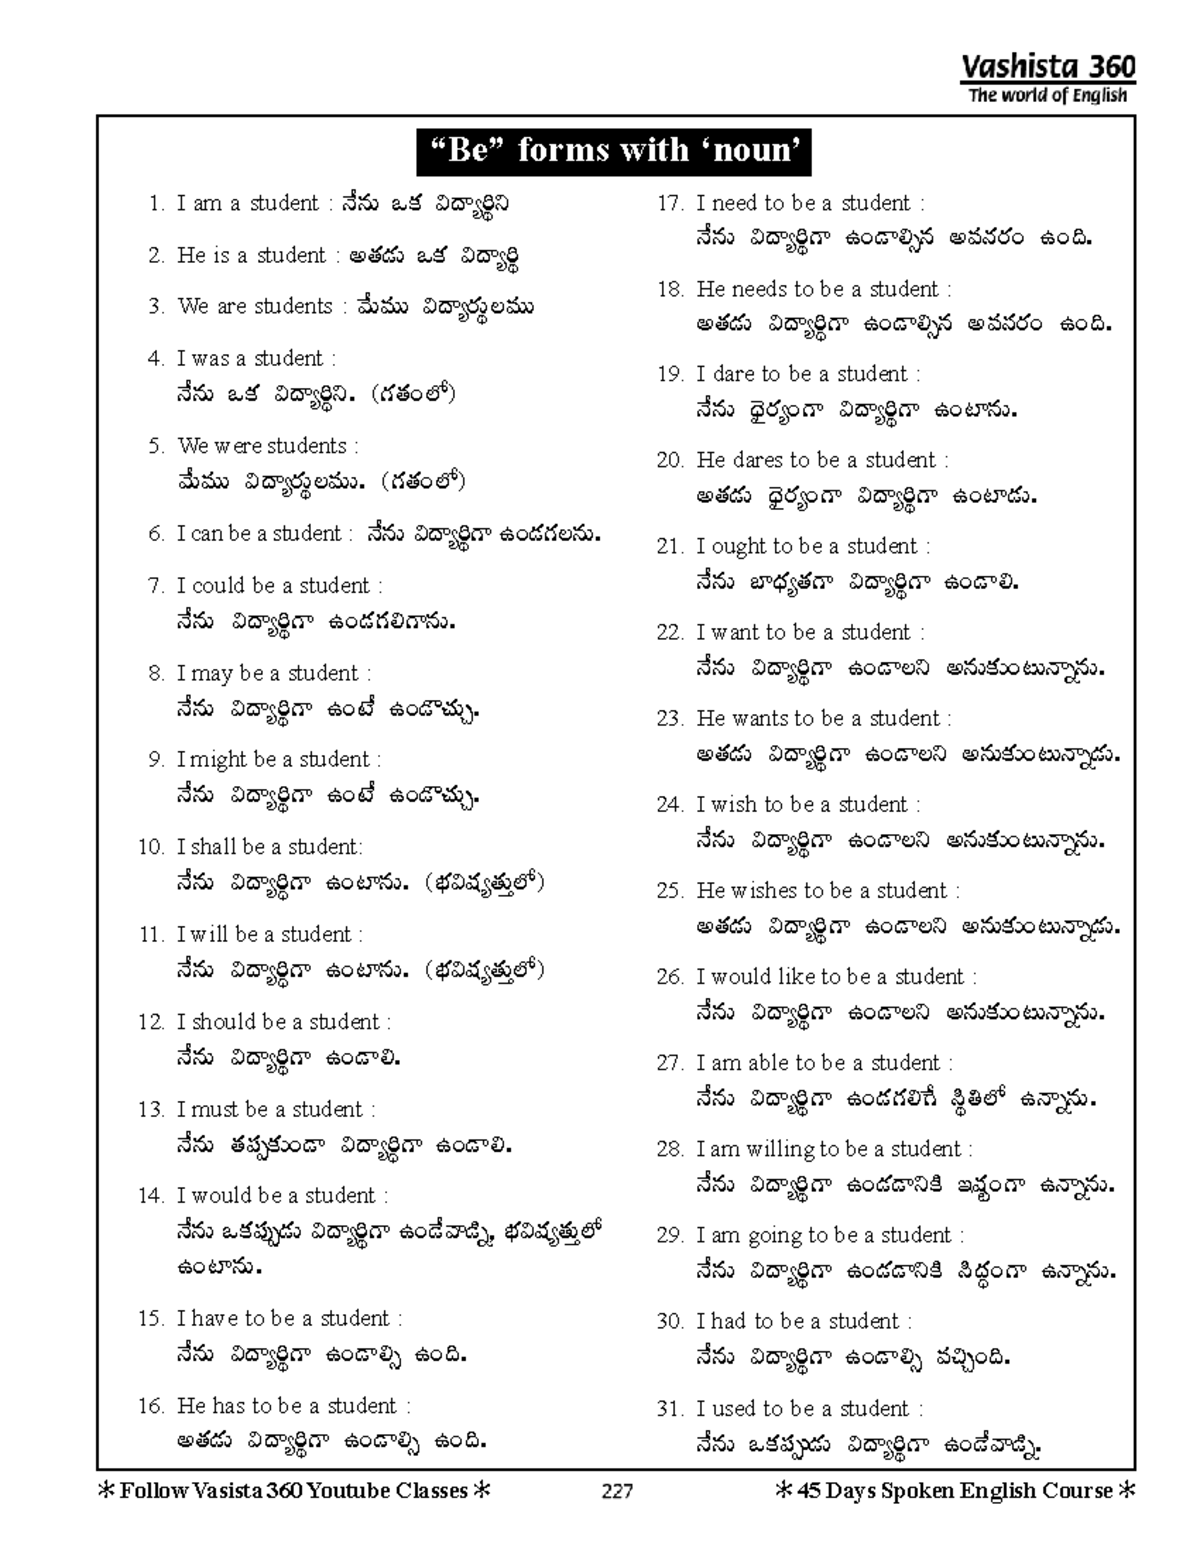 Vashista 360
The world of English
“Be” forms with ‘noun’
1. I am a student : నేను ఒక విద్యార్థిని
2. He is a student : అతడు ఒక విద్యార్థి
3. We are students : మేము విద్యార్థులము
4. I was a student :
నేను ఒక విద్యార్థిని. (గతంలో)
5. We were students :
మేము విద్యార్థులము. (గతంలో)
6. I can be a student : నేను విద్యార్థిగా ఉండగలను.
7. I could be a student :
నేను విద్యార్థిగా ఉండగలిగాను.
8. I may be a student :
నేను విద్యార్థిగా ఉంటే ఉండొచ్చు.
9. I might be a student :
నేను విద్యార్థిగా ఉంటే ఉండొచ్చు.
10. I shall be a student:
నేను విద్యార్థిగా ఉంటాను. (భవిష్యత్తులో)
11. I will be a student :
నేను విద్యార్థిగా ఉంటాను. (భవిష్యత్తులో)
12. I should be a student :
నేను విద్యార్థిగా ఉండాలి.
13. I must be a student :
నేను తప్పకుండా విద్యార్థిగా ఉండాలి.
14. I would be a student :
నేను ఒకప్పుడు విద్యార్థిగా ఉండేవాడ్ని, భవిష్యత్తులో
ఉంటాను.
15. I have to be a student :
నేను విద్యార్థిగా ఉండాల్సి ఉంది.
16. He has to be a student :
అతడు విద్యార్థిగా ఉండాల్సి ఉంది.
17. I need to be a student :
నేను విద్యార్థిగా ఉండాల్సిన అవసరం ఉంది.
18. He needs to be a student :
అతడు విద్యార్థిగా ఉండాల్సిన అవసరం ఉంది.
19. I dare to be a student :
నేను ధైర్యంగా విద్యార్థిగా ఉంటాను.
20. He dares to be a student :
అతడు ధైర్యంగా విద్యార్థిగా ఉంటాడు.
21. I ought to be a student :
నేను బాధ్యతగా విద్యార్థిగా ఉండాలి.
22. I want to be a student :
నేను విద్యార్థిగా ఉండాలని అనుకుంటున్నాను.
23. He wants to be a student :
అతడు విద్యార్థిగా ఉండాలని అనుకుంటున్నాడు.
24. I wish to be a student :
నేను విద్యార్థిగా ఉండాలని అనుకుంటున్నాను.
25. He wishes to be a student :
అతడు విద్యార్థిగా ఉండాలని అనుకుంటున్నాడు.
26. I would like to be a student :
నేను విద్యార్థిగా ఉండాలని అనుకుంటున్నాను.
27. I am able to be a student :
నేను విద్యార్థిగా ఉండగలిగే స్థితిలో ఉన్నాను.
28. I am willing to be a student :
నేను విద్యార్థిగా ఉండడానికి ఇష్టంగా ఉన్నాను.
29. I am going to be a student :
నేను విద్యార్థిగా ఉండడానికి సిద్ధంగా ఉన్నాను.
30. I had to be a student :
నేను విద్యార్థిగా ఉండాల్సి వచ్చింది.
31. I used to be a student :
నేను ఒకప్పుడు విద్యార్థిగా ఉండేవాడ్ని.
* Follow Vasista 360 Youtube Classes * 227 * 45 Days Spoken English Course *